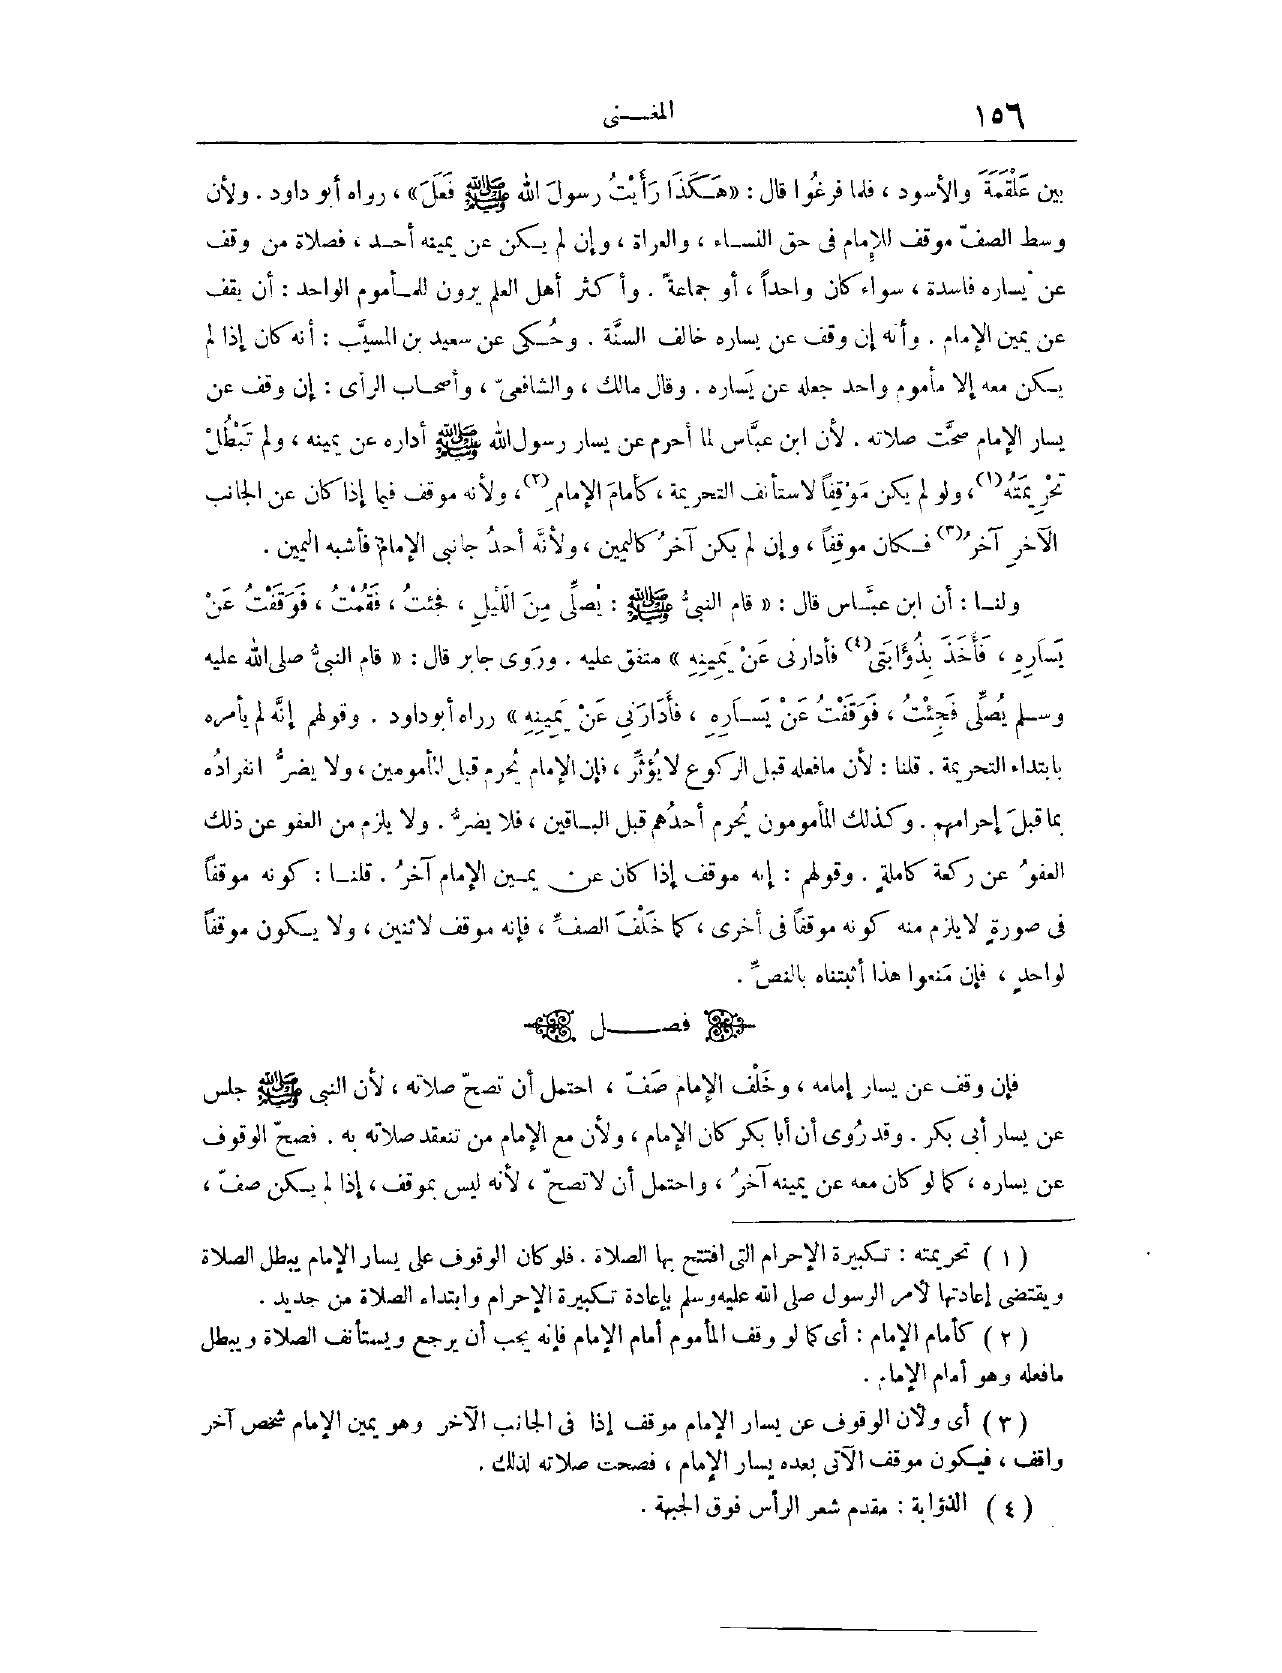 ١٥٦
المغـــنى
بين عَلْقَمَةَ والأسود ، فلما فرغُوا قال : «هَـكَذَا رَأَيْتُ رسولَ الله ﷺ فَعَلَ» ، رواه أبو داود . ولأن
وسط الصفّ موقف للإمام فى حق النسـاء ، والعراة ، وإن لم يـكن عن يمينه أحـد ، فصلاة من وقف
عن يساره فاسدة ، سواء كان واحداً ، أو جماعةً . وأكثر أهل العلم يرون للمـأموم الواحد : أن يقف
عن يمين الإمام . وأنه إن وقف عن يساره خالف السنَّة . وحُـكى عن سعيد بن المسيَّب : أنه كان إذا لم
يـكن معه إلا مأموم واحد جعله عن يَساره . وقال مالك ، والشافعىّ ، وأصحـاب الرأى : إن وقف عن
يسار الإمام صحَّت صلاته . لأن ابن عبَّاس لما أحرم عن يسار رسول الله ﷺ أداره عن يمينه ، ولم تَبْطُلْ
تَحْرِيمَتُهُ (١) ، ولو لم يكن مَوْقِفاً لاستأنف التحريمة ، كأمامَ الإمامِ (٢) ، ولأنه موقف فيما إذا كان عن الجانب
الآخرِ آخرُ (٣) فـكان موقفاً ، وإن لم يكن آخرُ كاليمين ، ولأنَّه أحدُ جانبى الإمام فأشبه اليمين .
ولنـا : أن ابن عبَّـاس قال : « قام النبىُّ ﷺ : يُصلِّى مِنَ اللَّيلِ ، فجئتُ ، فَقُمْتُ ، فَوَقَفْتُ عَنْ
يَسَارِهِ ، فَأَخَذَ بِذُؤَابَتِى (٤) فأدارنى عَنْ يَمِينِهِ » متفق عليه . ورَوى جابر قال : « قام النبىُّ صلى الله عليه
وسـلم يُصَلِّى فَجِئْتُ ، فَوَقَفْتُ عَنْ يَسَـارِهِ ، فَأَدَارَنِى عَنْ يَمِينِهِ » رراه أبو داود . وقولهم إنَّه لم يأمره
بابتداء التحريمة . قلنا : لأن مافعله قبل الركوع لا يُؤثِّر ، فإن الإمام يُحرم قبل المأمومين ، ولا يضرُّ انفرادُه
بما قبلَ إحرامهم . وكذلك المأمومون يُحرم أحدُهم قبل البـاقين ، فلا يضرُّ . ولا يلزم من العفو عن ذلك
العفوُ عن ركعة كاملةٍ . وقولهم : إنه موقف إذا كان عن يمـين الإمام آخرُ . قلنـا : كونه موقفاً
فى صورةٍ لايلزم منه كونه موقفاً فى أخرى ، كما خَلْفَ الصفِّ ، فإنه موقف لاثنين ، ولا يـكون موقفاً
لواحدٍ ، فإن مَنعوا هذا أثبتناه بالنصِّ .
فصـــــل
فإن وقف عن يسار إمامه ، وخَلْف الإمام صَفّ ، احتمل أن تصحّ صلاته ، لأن النبى ﷺ جلس
عن يسار أبى بكر . وقد رُوى أن أبا بكر كان الإمام ، ولأن مع الإمام من تنعقد صلاته به . فصحّ الوقوف
عن يساره ، كما لو كان معه عن يمينه آخرُ ، واحتمل أن لاتصحّ ، لأنه ليس بموقف ، إذا لم يـكن صفّ ،
( ١ ) تحريمته : تـكبيرة الإحرام التى افتتح بها الصلاة . فلو كان الوقوف على يسار الإمام يبطل الصلاة
ويقتضى إعادتها لأمر الرسول صلى الله عليه وسلم بإعادة تـكبيرة الإحرام وابتداء الصلاة من جديد .
( ٢ ) كأمام الإمام : أى كما لو وقف المأموم أمام الإمام فإنه يجب أن يرجع ويستأنف الصلاة ويبطل
مافعله وهو أمام الإمام .
( ٣ ) أى ولأن الوقوف عن يسار الإمام موقف إذا فى الجانب الآخر وهو يمين الإمام شخص آخر
واقف ، فيـكون موقف الآتى بعده يسار الإمام ، فصحت صلاته لذلك .
( ٤ ) الذؤابة : مقدم شعر الرأس فوق الجبهة .